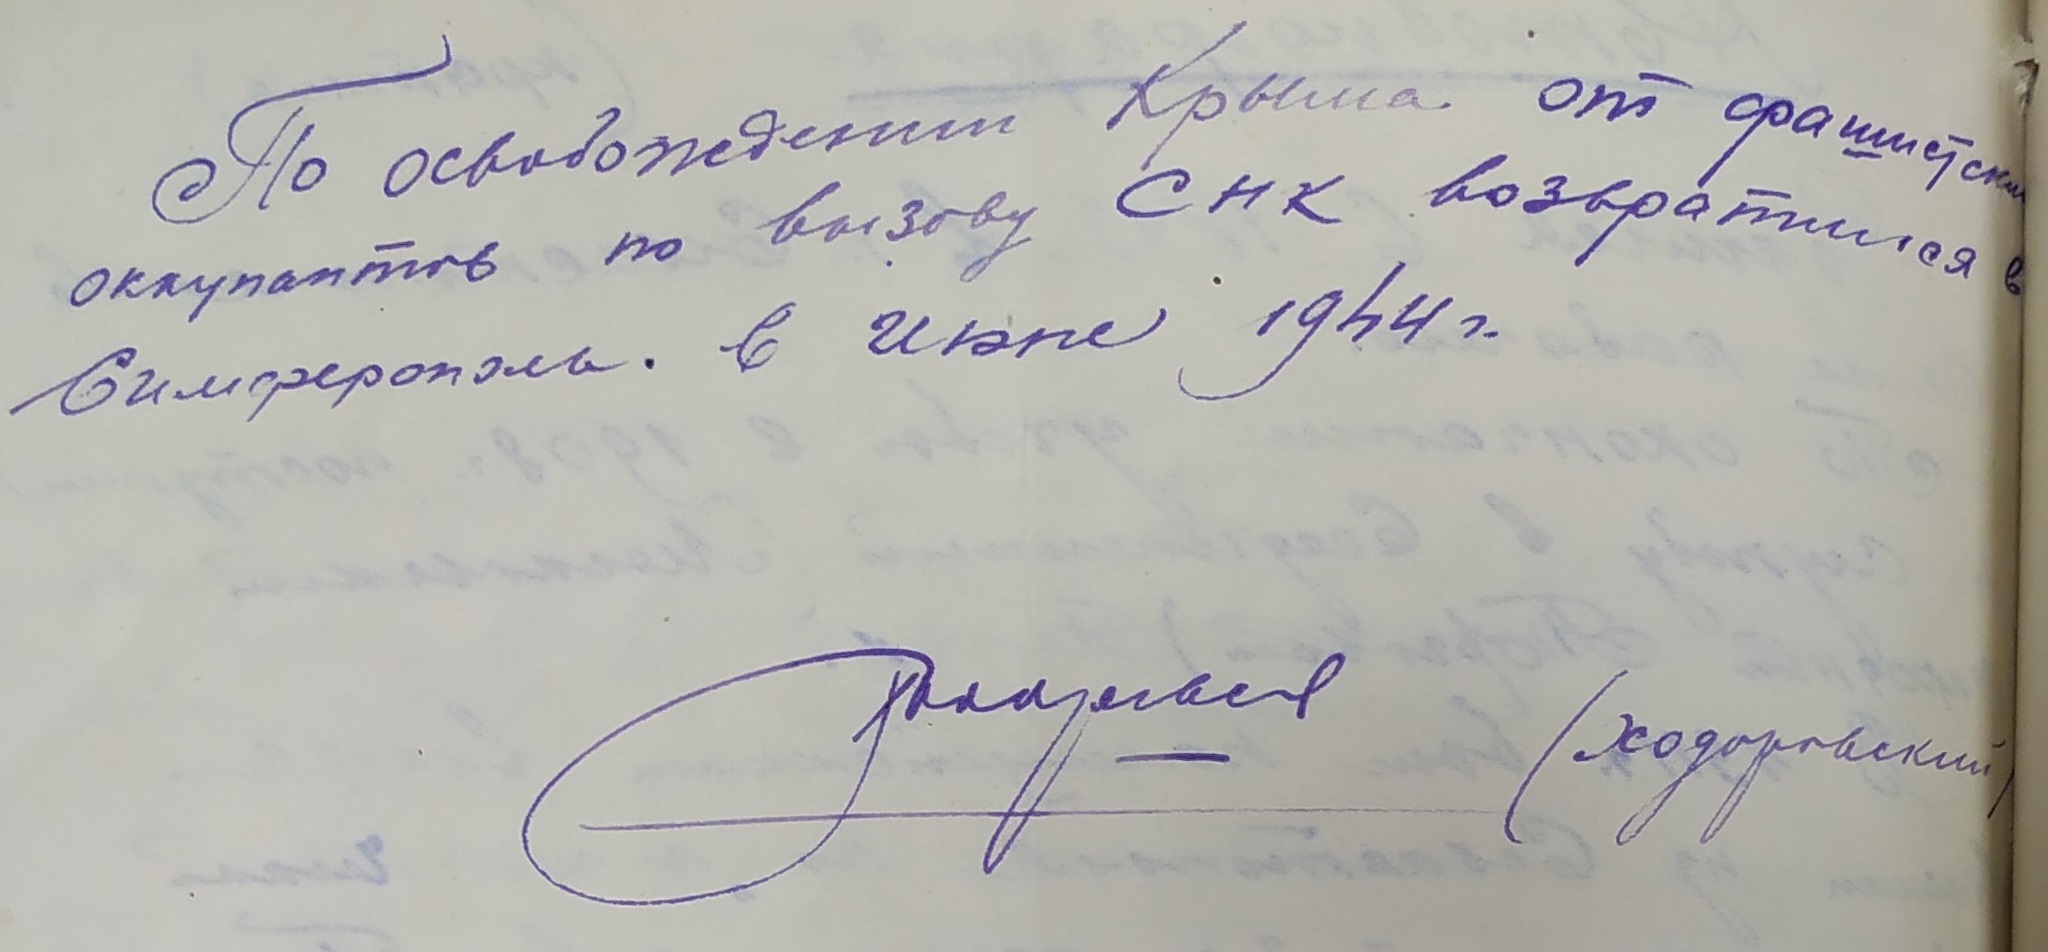 По освобождении Крыма от фашистских
оккупантов по вызову СНК возвратился в
Симферополь. в Июне 1944 г.
(Ходоровский)